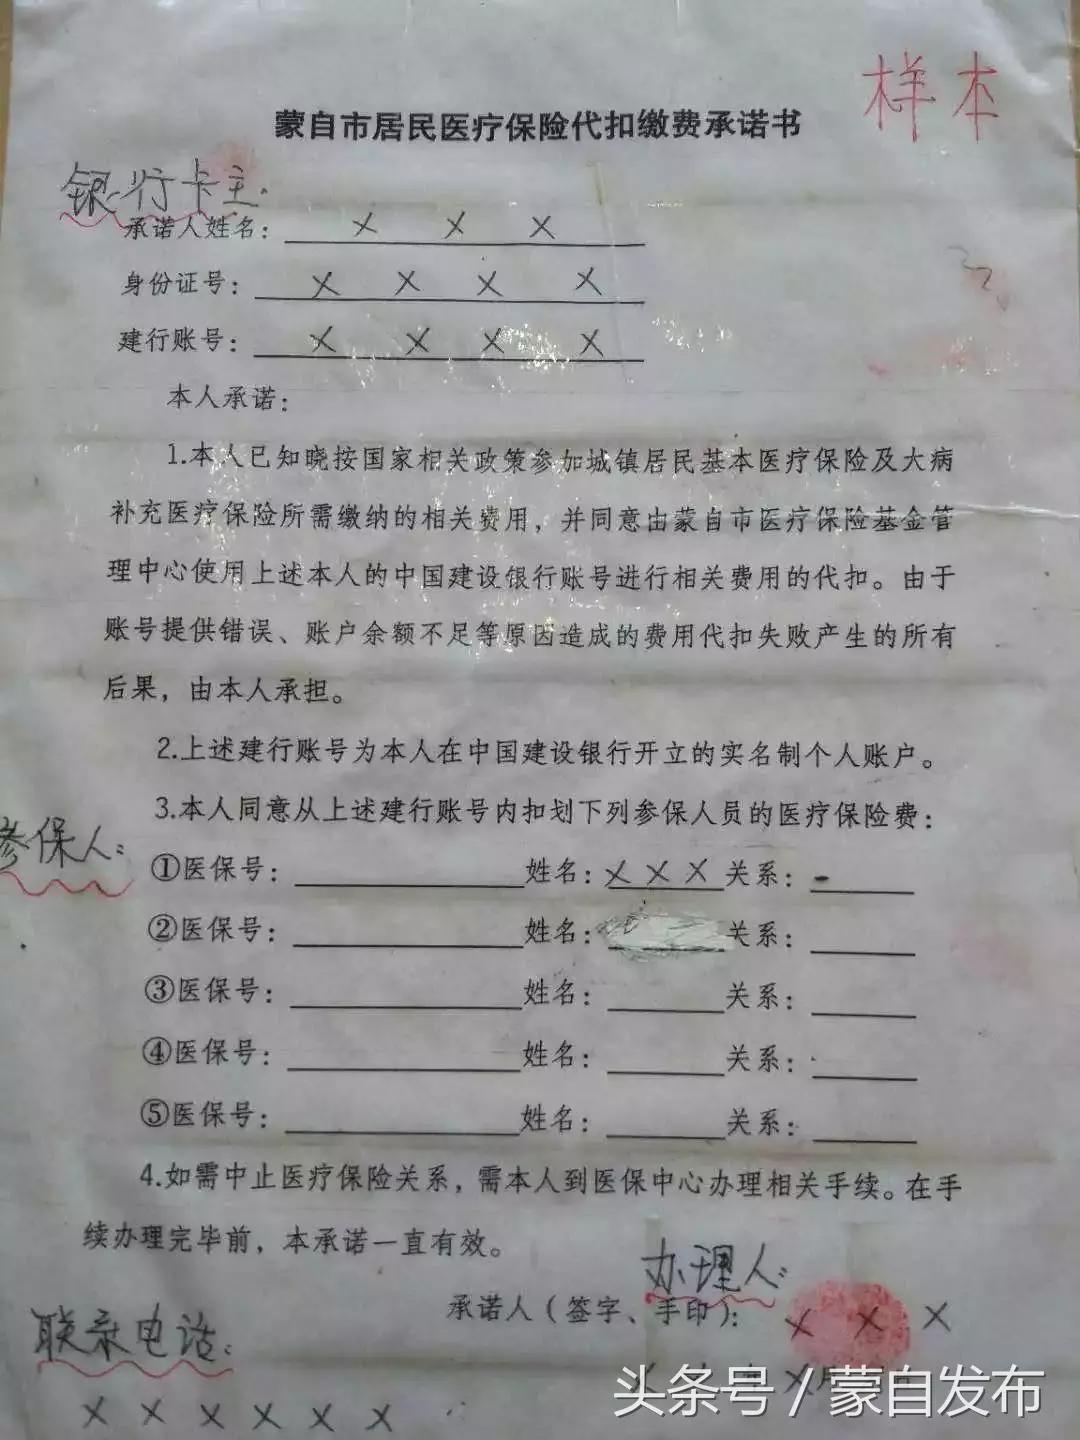 样本
蒙自市居民医疗保险代扣缴费承诺书
银行卡主.
承诺人姓名: X X X
身份证号: X X X X
建行账号: X X X X
本人承诺:
1.本人已知晓按国家相关政策参加城镇居民基本医疗保险及大病
补充医疗保险所需缴纳的相关费用，并同意由蒙自市医疗保险基金管
理中心使用上述本人的中国建设银行账号进行相关费用的代扣。由于
账号提供错误、账户余额不足等原因造成的费用代扣失败产生的所有
后果，由本人承担。
2.上述建行账号为本人在中国建设银行开立的实名制个人账户。
3.本人同意从上述建行账号内扣划下列参保人员的医疗保险费:
参保人:
①医保号: 姓名: X X X 关系:
②医保号: 姓名: 关系:
③医保号: 姓名: 关系:
④医保号: 姓名: 关系:
⑤医保号: 姓名: 关系:
4.如需中止医疗保险关系，需本人到医保中心办理相关手续。在手
续办理完毕前，本承诺一直有效。
办理人:
承诺人（签字、手印）: X X X
联系电话:
X X X X X X
头条号 / 蒙自发布